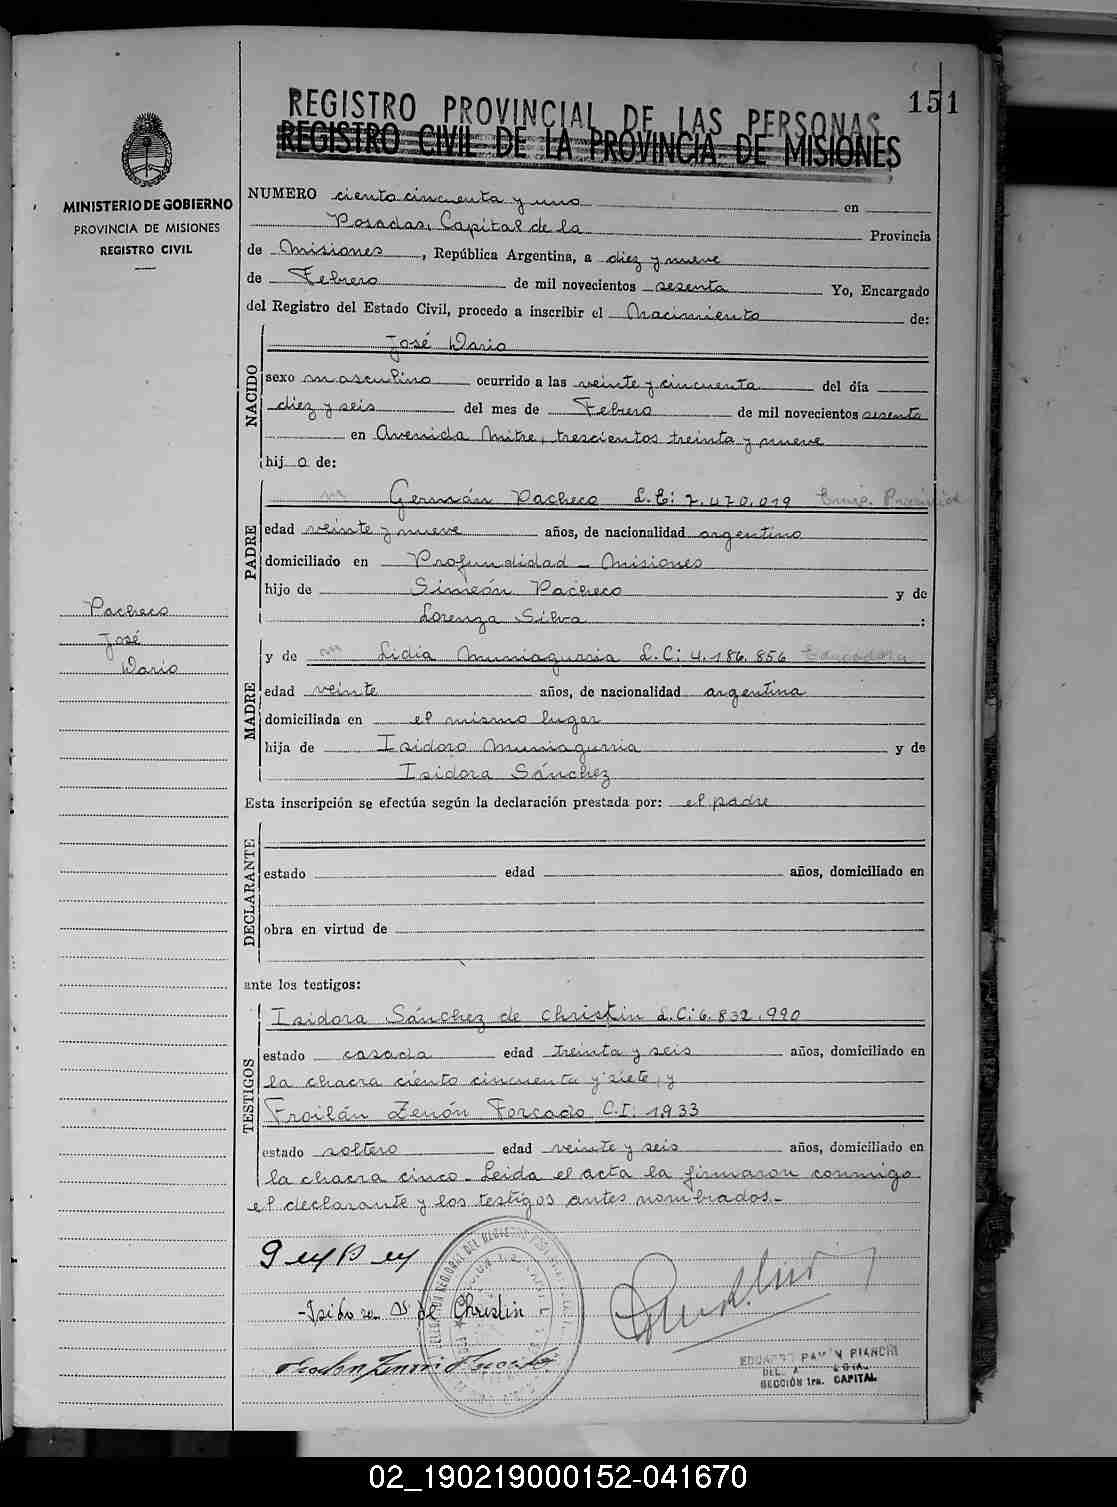 151
REGISTRO PROVINCIAL DE LAS PERSONAS
REGISTRO CIVIL DE LA PROVINCIA DE MISIONES
MINISTERIO DE GOBIERNO
PROVINCIA DE MISIONES
REGISTRO CIVIL
NUMERO ciento cincuenta y uno en
Posadas, Capital de la Provincia
de Misiones, República Argentina, a diez y nueve
de Febrero de mil novecientos sesenta Yo, Encargado
del Registro del Estado Civil, procedo a inscribir el Nacimiento de:
NACIDO
José Dario
sexo masculino ocurrido a las veinte y cincuenta del día
diez y seis del mes de Febrero de mil novecientos sesenta
en Avenida Mitre, trescientos treinta y nueve
hijo de:
PADRE
m Germán Pacheco L.E: 7.470.019 Emp. Provincial
edad veinte y nueve años, de nacionalidad argentino
domiciliado en Profundidad - Misiones
hijo de Simeón Pacheco y de
Lorenza Silva :
Pacheco
José
Dario
MADRE
y de m Lidia Muniagurria L.C: 4.186.856 Educadora
edad veinte años, de nacionalidad argentina
domiciliada en el mismo lugar
hija de Isidoro Muniagurria y de
Isidora Sánchez
Esta inscripción se efectúa según la declaración prestada por: el padre
DECLARANTE
estado edad años, domiciliado en
obra en virtud de
ante los testigos:
TESTIGOS
Isidora Sánchez de Christin L.C: 6.832.990
estado casada edad treinta y seis años, domiciliado en
la chacra ciento cincuenta y siete, y
Froilán Zenón Forcado C.I: 1933
estado soltero edad veinte y seis años, domiciliado en
la chacra cinco. Leida el acta la firmaron conmigo
el declarante y los testigos antes nombrados.-
Isidora S de Christin
EDUARDO RAMÓN PIANCHI
SECCIÓN 1ra. CAPITAL
02_190219000152-041670